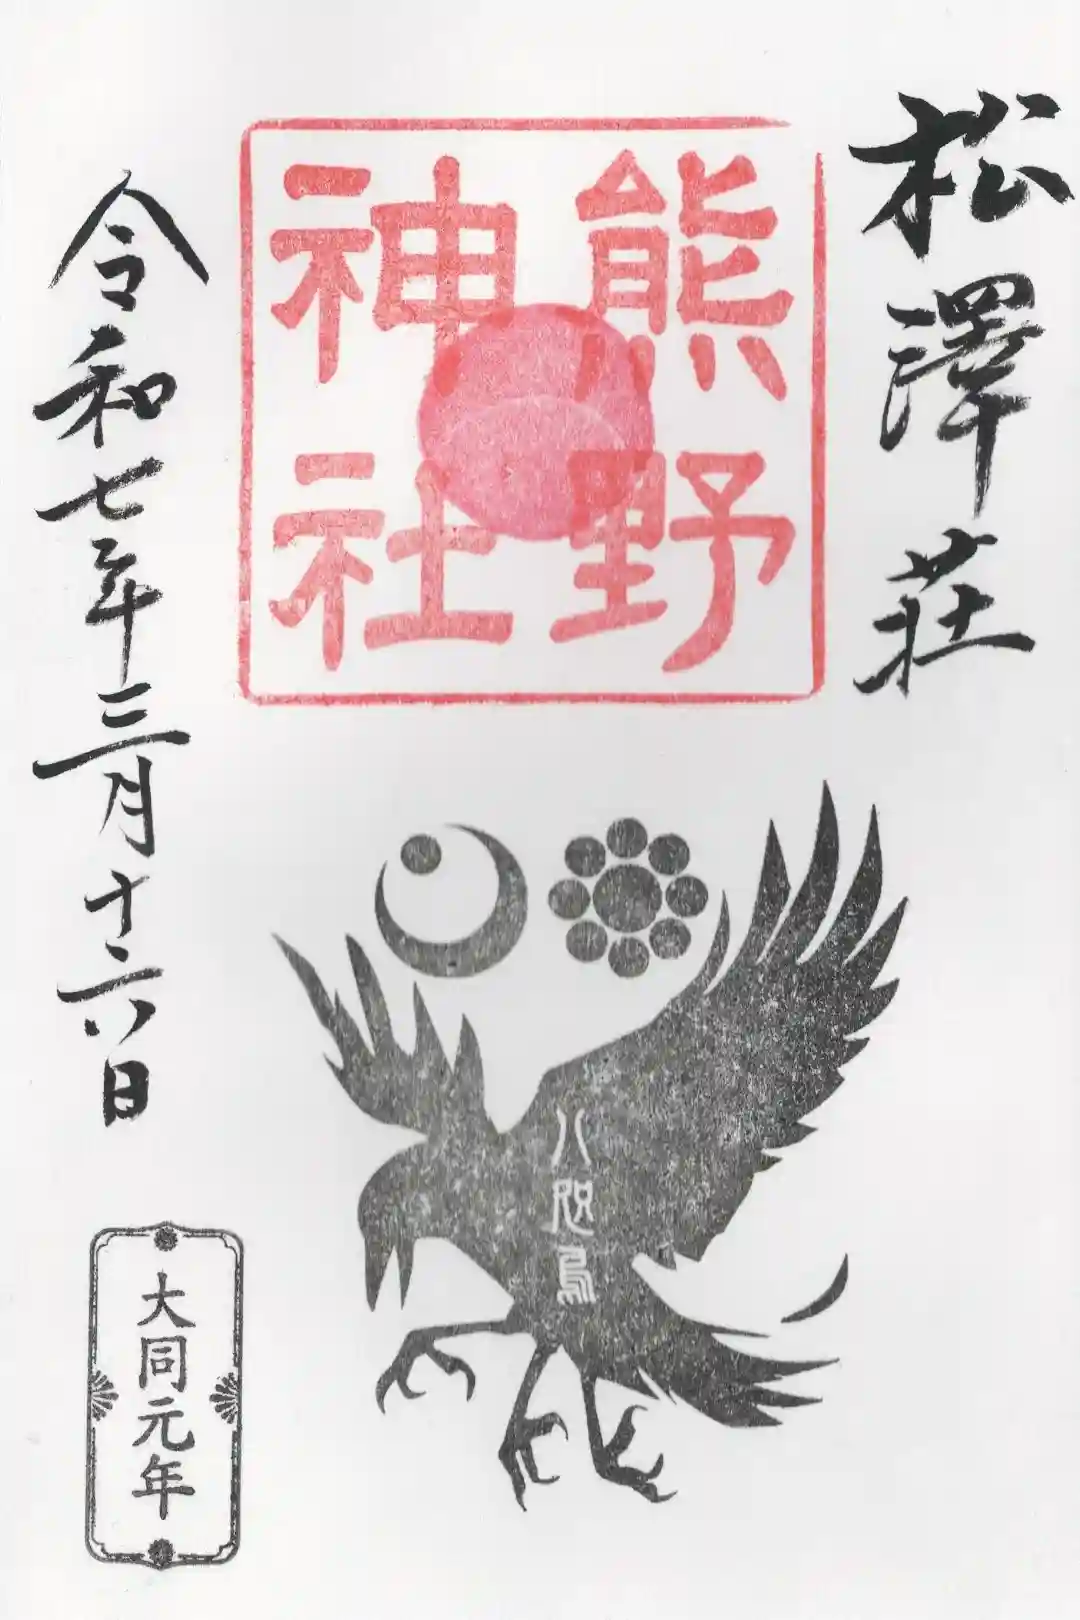 松澤荘
熊野
神社
八咫烏
令和七年三月十六日
大同元年